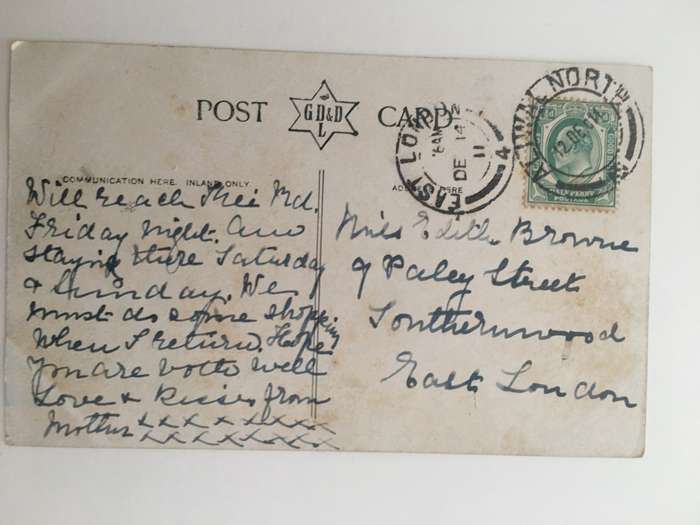 POST CARD
GD&D
L
COMMUNICATION HERE. INLAND ONLY.
ADDRESS HERE
Will reach Kei Rd.
Friday night. Am
staying there Saturday
& Sunday. We
must do some shopping
when I return. Hope
you are both well
Love & Kisses from
Mother xxxxxxxx
xxxxxxxx
Miss Edith Browne
9 Paley Street
Southernwood
East London
EAST LONDON
DE 14
11
4
ALIWAL NORTH
12 DE 11
HALF PENNY
POSTAGE